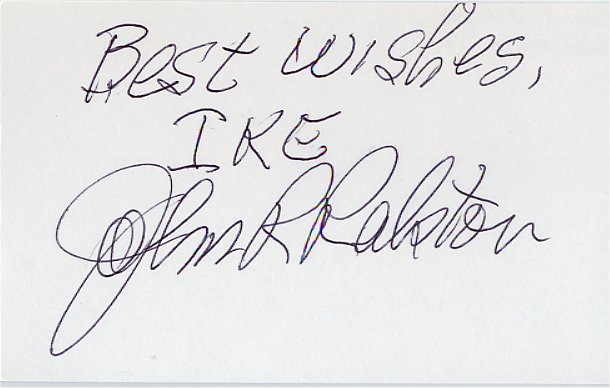 Best Wishes,
IKE
John R Ralston